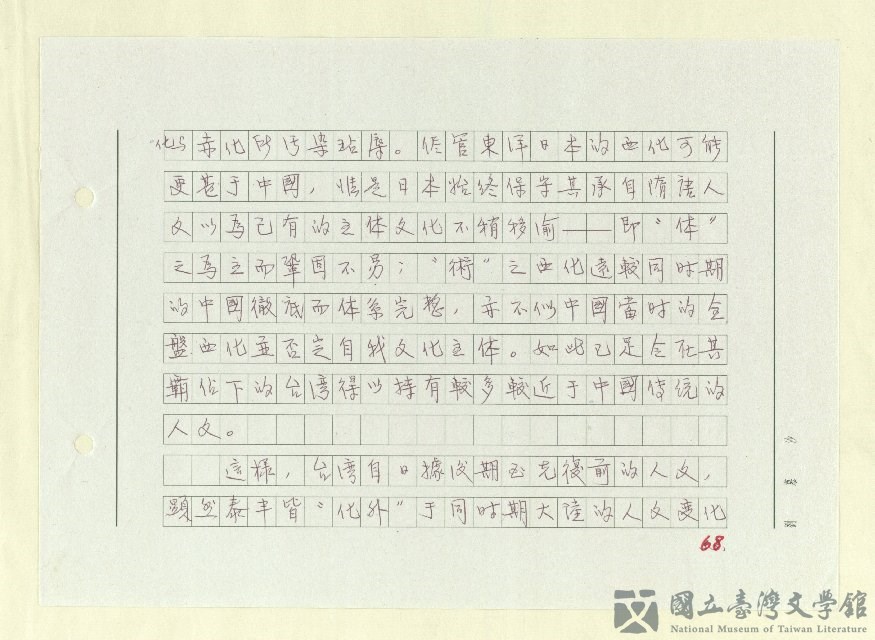 化与赤化所污染玷辱。儘管東洋日本的西化可能
更甚于中國，惟是日本始終保守其承自隋唐人
文以為己有的主体文化不稍移渝——即“体”
之為主而鞏固不易；“術”之西化遠較同时期
的中國徹底而体系完整，亦不似中國當时的全
盤西化並否定自我文化主体。如此已足令在其
霸佔下的台湾得以持有較多較近于中國传统的
人文。
這樣，台湾自日據後期至光復前的人文，
顕然泰半皆“化外”于同时期大陸的人文变化
68.
國立臺灣文學館
National Museum of Taiwan Literature